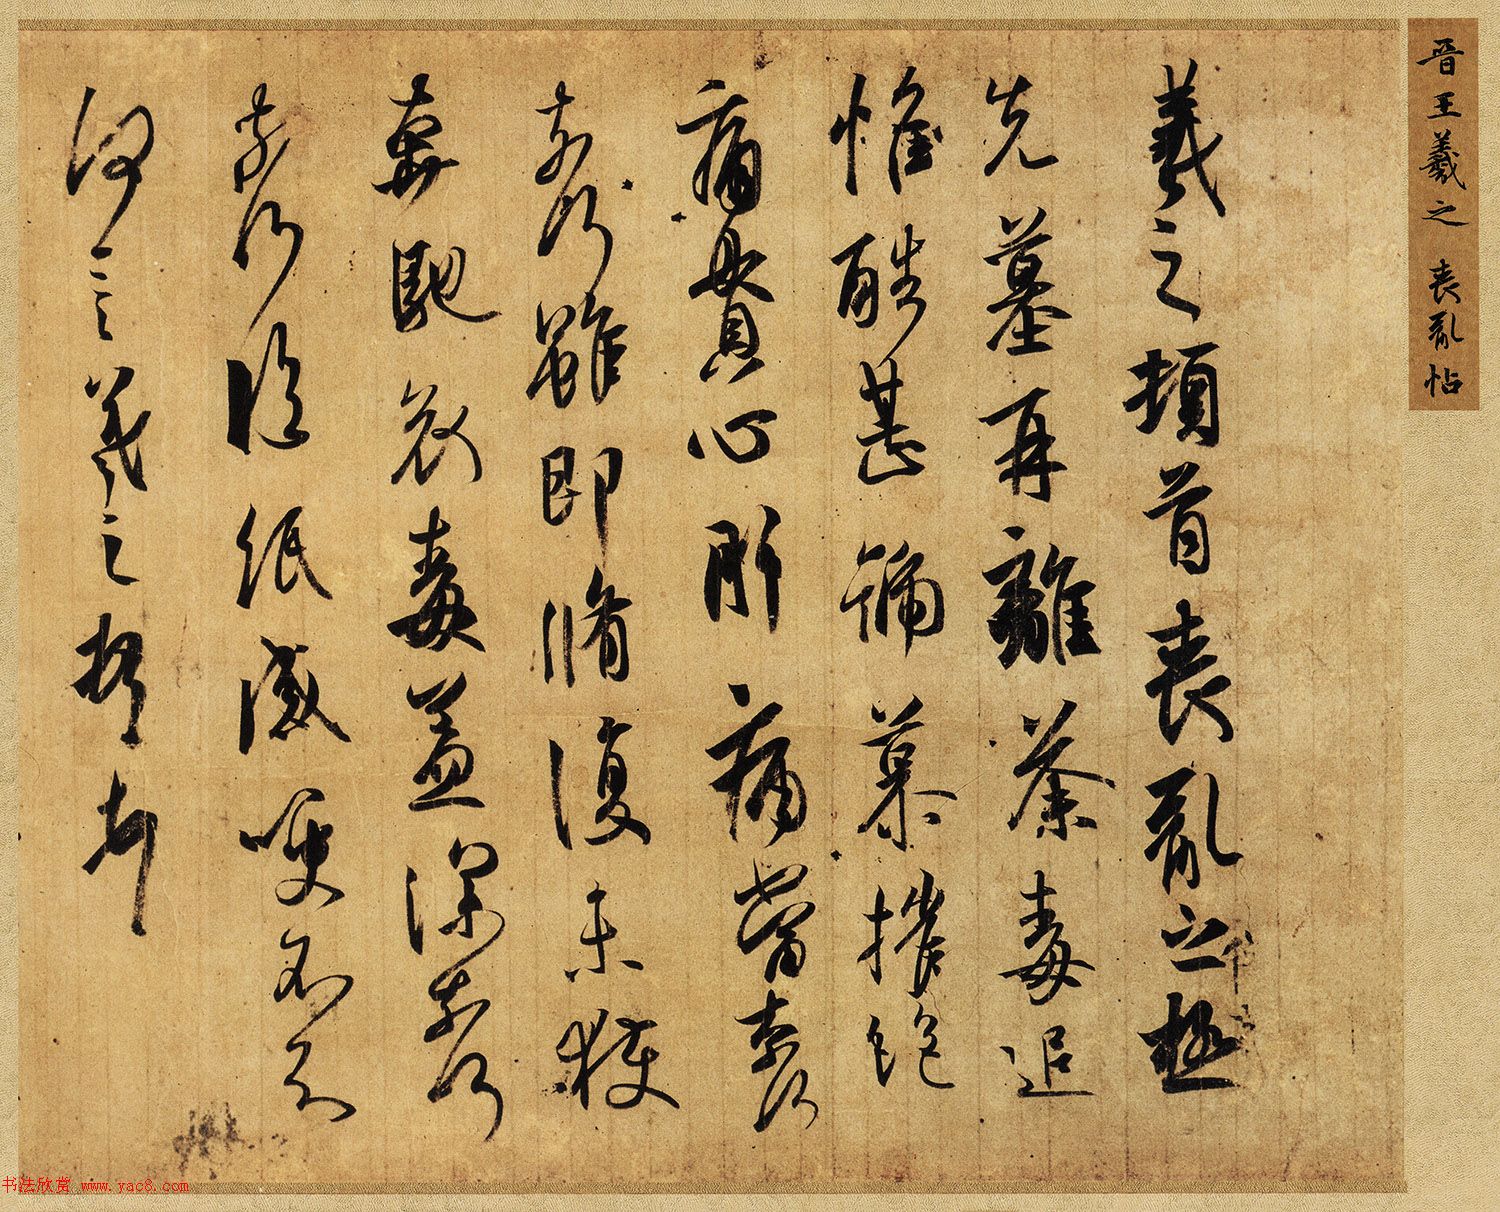 晋王羲之 丧乱帖
羲之頓首喪亂之極
先墓再離荼毒追
惟酷甚號慕摧絕
痛貫心肝痛當柰何
柰何雖即脩復未獲
奔馳哀毒益深柰何
柰何臨紙感哽不知
何言羲之頓首頓首
书法欣赏 www.yac8.com